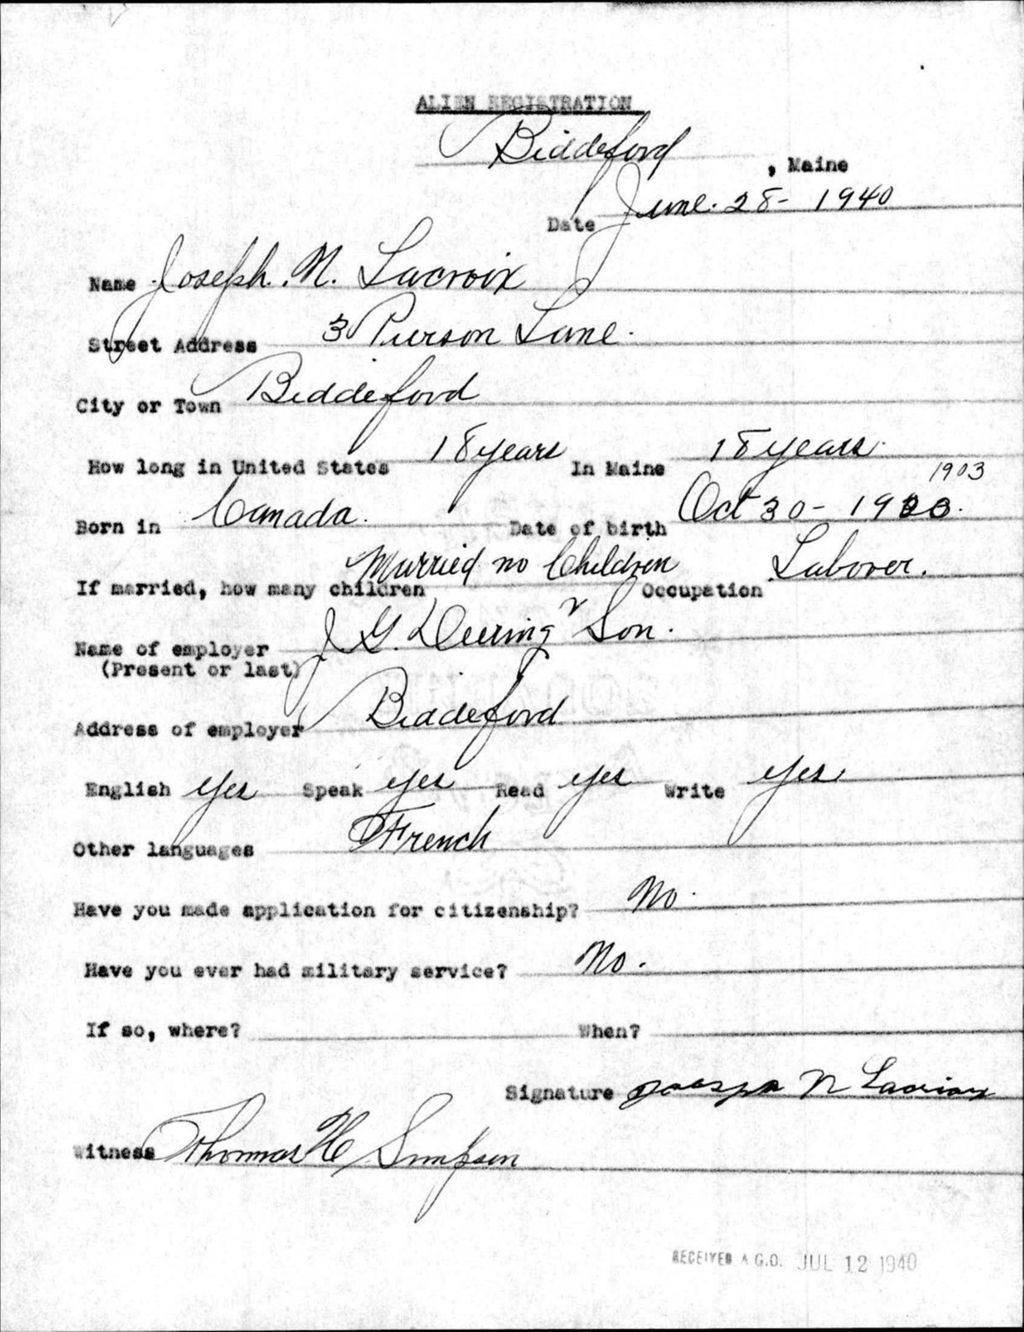 ALIEN REGISTRATION
Biddeford, Maine
Date June. 28 - 1940
Name Joseph. N. Lacroix
Street Address 3 Pierson Lane.
City or Town Biddeford
How long in United States 18 years In Maine 18 years.
1903
Born in Canada. Date of birth Oct 30 - 19
If married, how many children Married no Children Occupation Laborer.
Name of employer J G. Deering & Son.
(Present or last)
Address of employer Biddeford
English Yes Speak yes Read yes Write yes
Other languages French
Have you made application for citizenship? No.
Have you ever had military service? No.
If so, where? When?
Signature Joseph N Lacroix
Witness Thomas H Simpson
RECEIVED A.G.O. JUL 12 1940